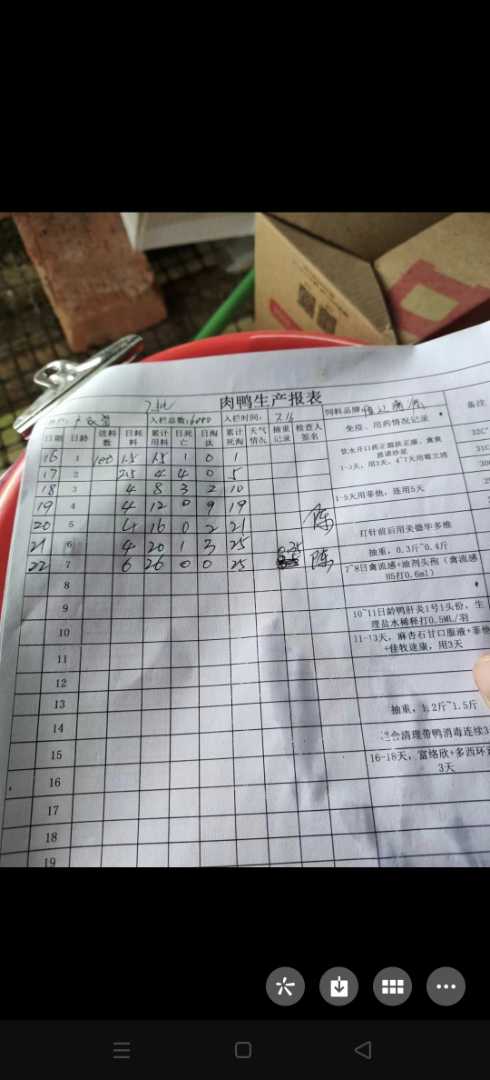 肉鸭生产报表
入栏总数: 入栏时间: 2/6 饲料品牌:
日期 日龄 进料数 日耗料 累计用料 日死亡 日淘汰 累计死淘 天气情况 抽重记录 检查人签名 免疫、用药情况记录 备注
16 1 100 1.5 1.5 1 0 1
17 2 2.5 4 4 0 5
18 3 4 8 3 2 10
19 4 4 12 0 9 19 1-5天用莘他,连用5天
20 5 4 16 0 2 21 陈 打针前后用美德华多维
21 6 4 20 1 3 25 0.25 抽重,0.3斤~0.4斤
22 7 6 26 0 0 25 陈 7~8日禽流感+油剂头孢(禽流感H5打0.6ml)
8
9
10 10~11日龄鸭肝炎1号1头份,生理盐水稀释打0.5ML/羽
11 11-13天,麻杏石甘口服液+莘他+佳牧速康,用3天
12
13 抽重,1.2斤~1.5斤
14 清理带鸭消毒连续3
15 16-18天,富络欣+多西环素3天
16
17
18
19